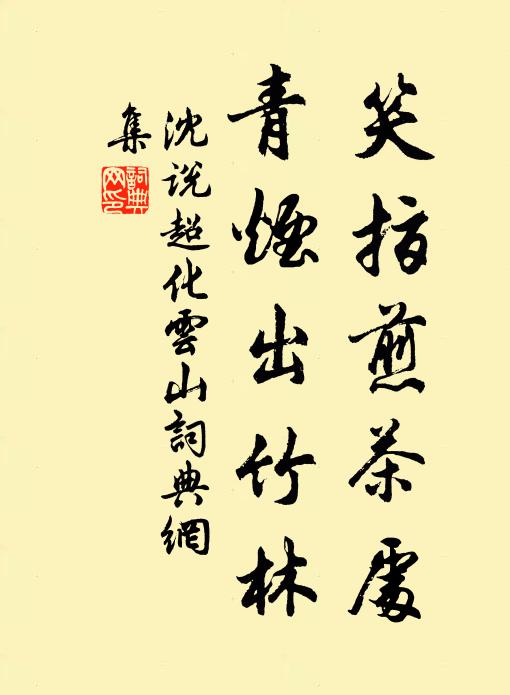 笑指煎茶處
青煙出竹林
沈说超化雲山詞典網
集
詞典網印